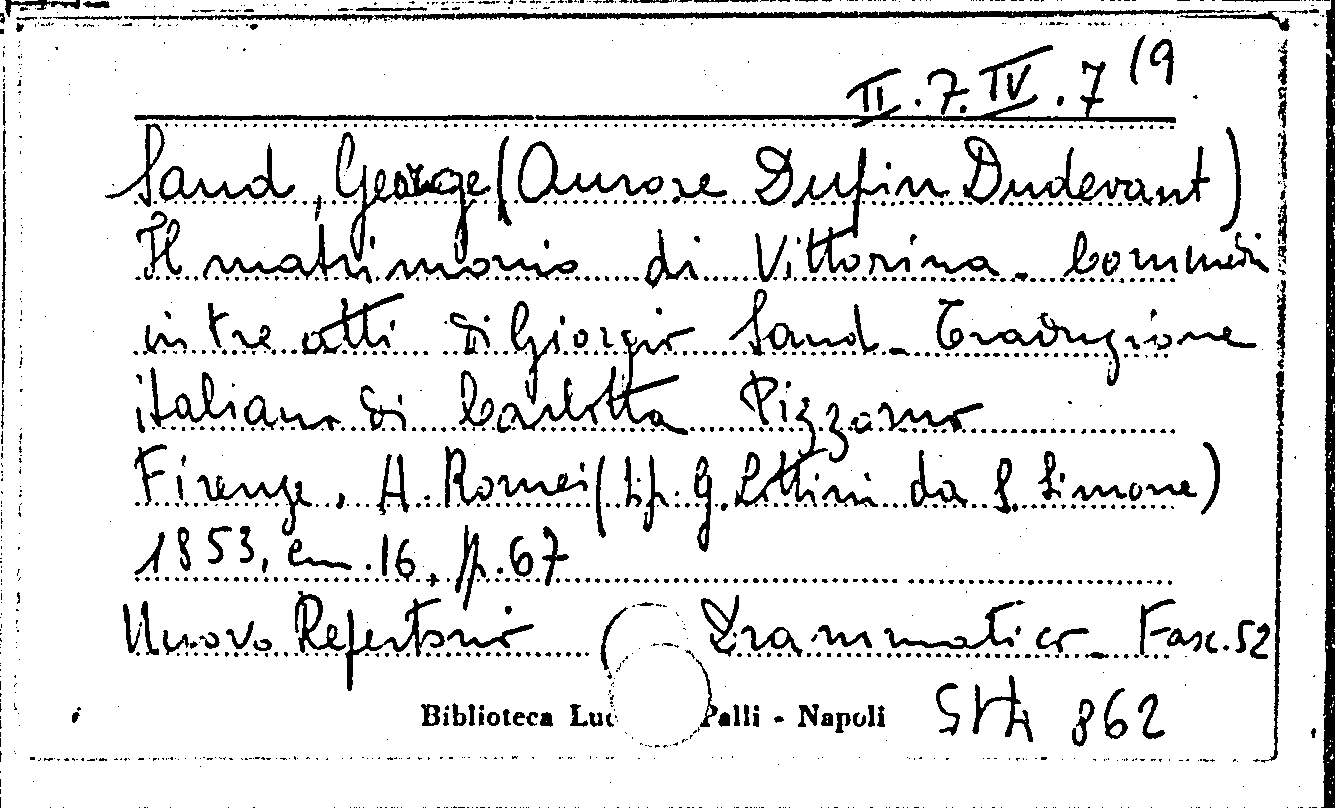 II.7.IV.7(9
Sand, George (Aurore Dupin Dudevant)
Il matrimonio di Vittorina - Commedia
in tre atti di Giorgio Sand - Traduzione
italiana di Carlotta Pizzorno
Firenze, A. Romei (tip. G. Lottini da S. Simone)
1853, cm. 16, p. 67
Nuovo Repertorio Drammatico - Fasc. 52
Biblioteca Luc Palli - Napoli 862